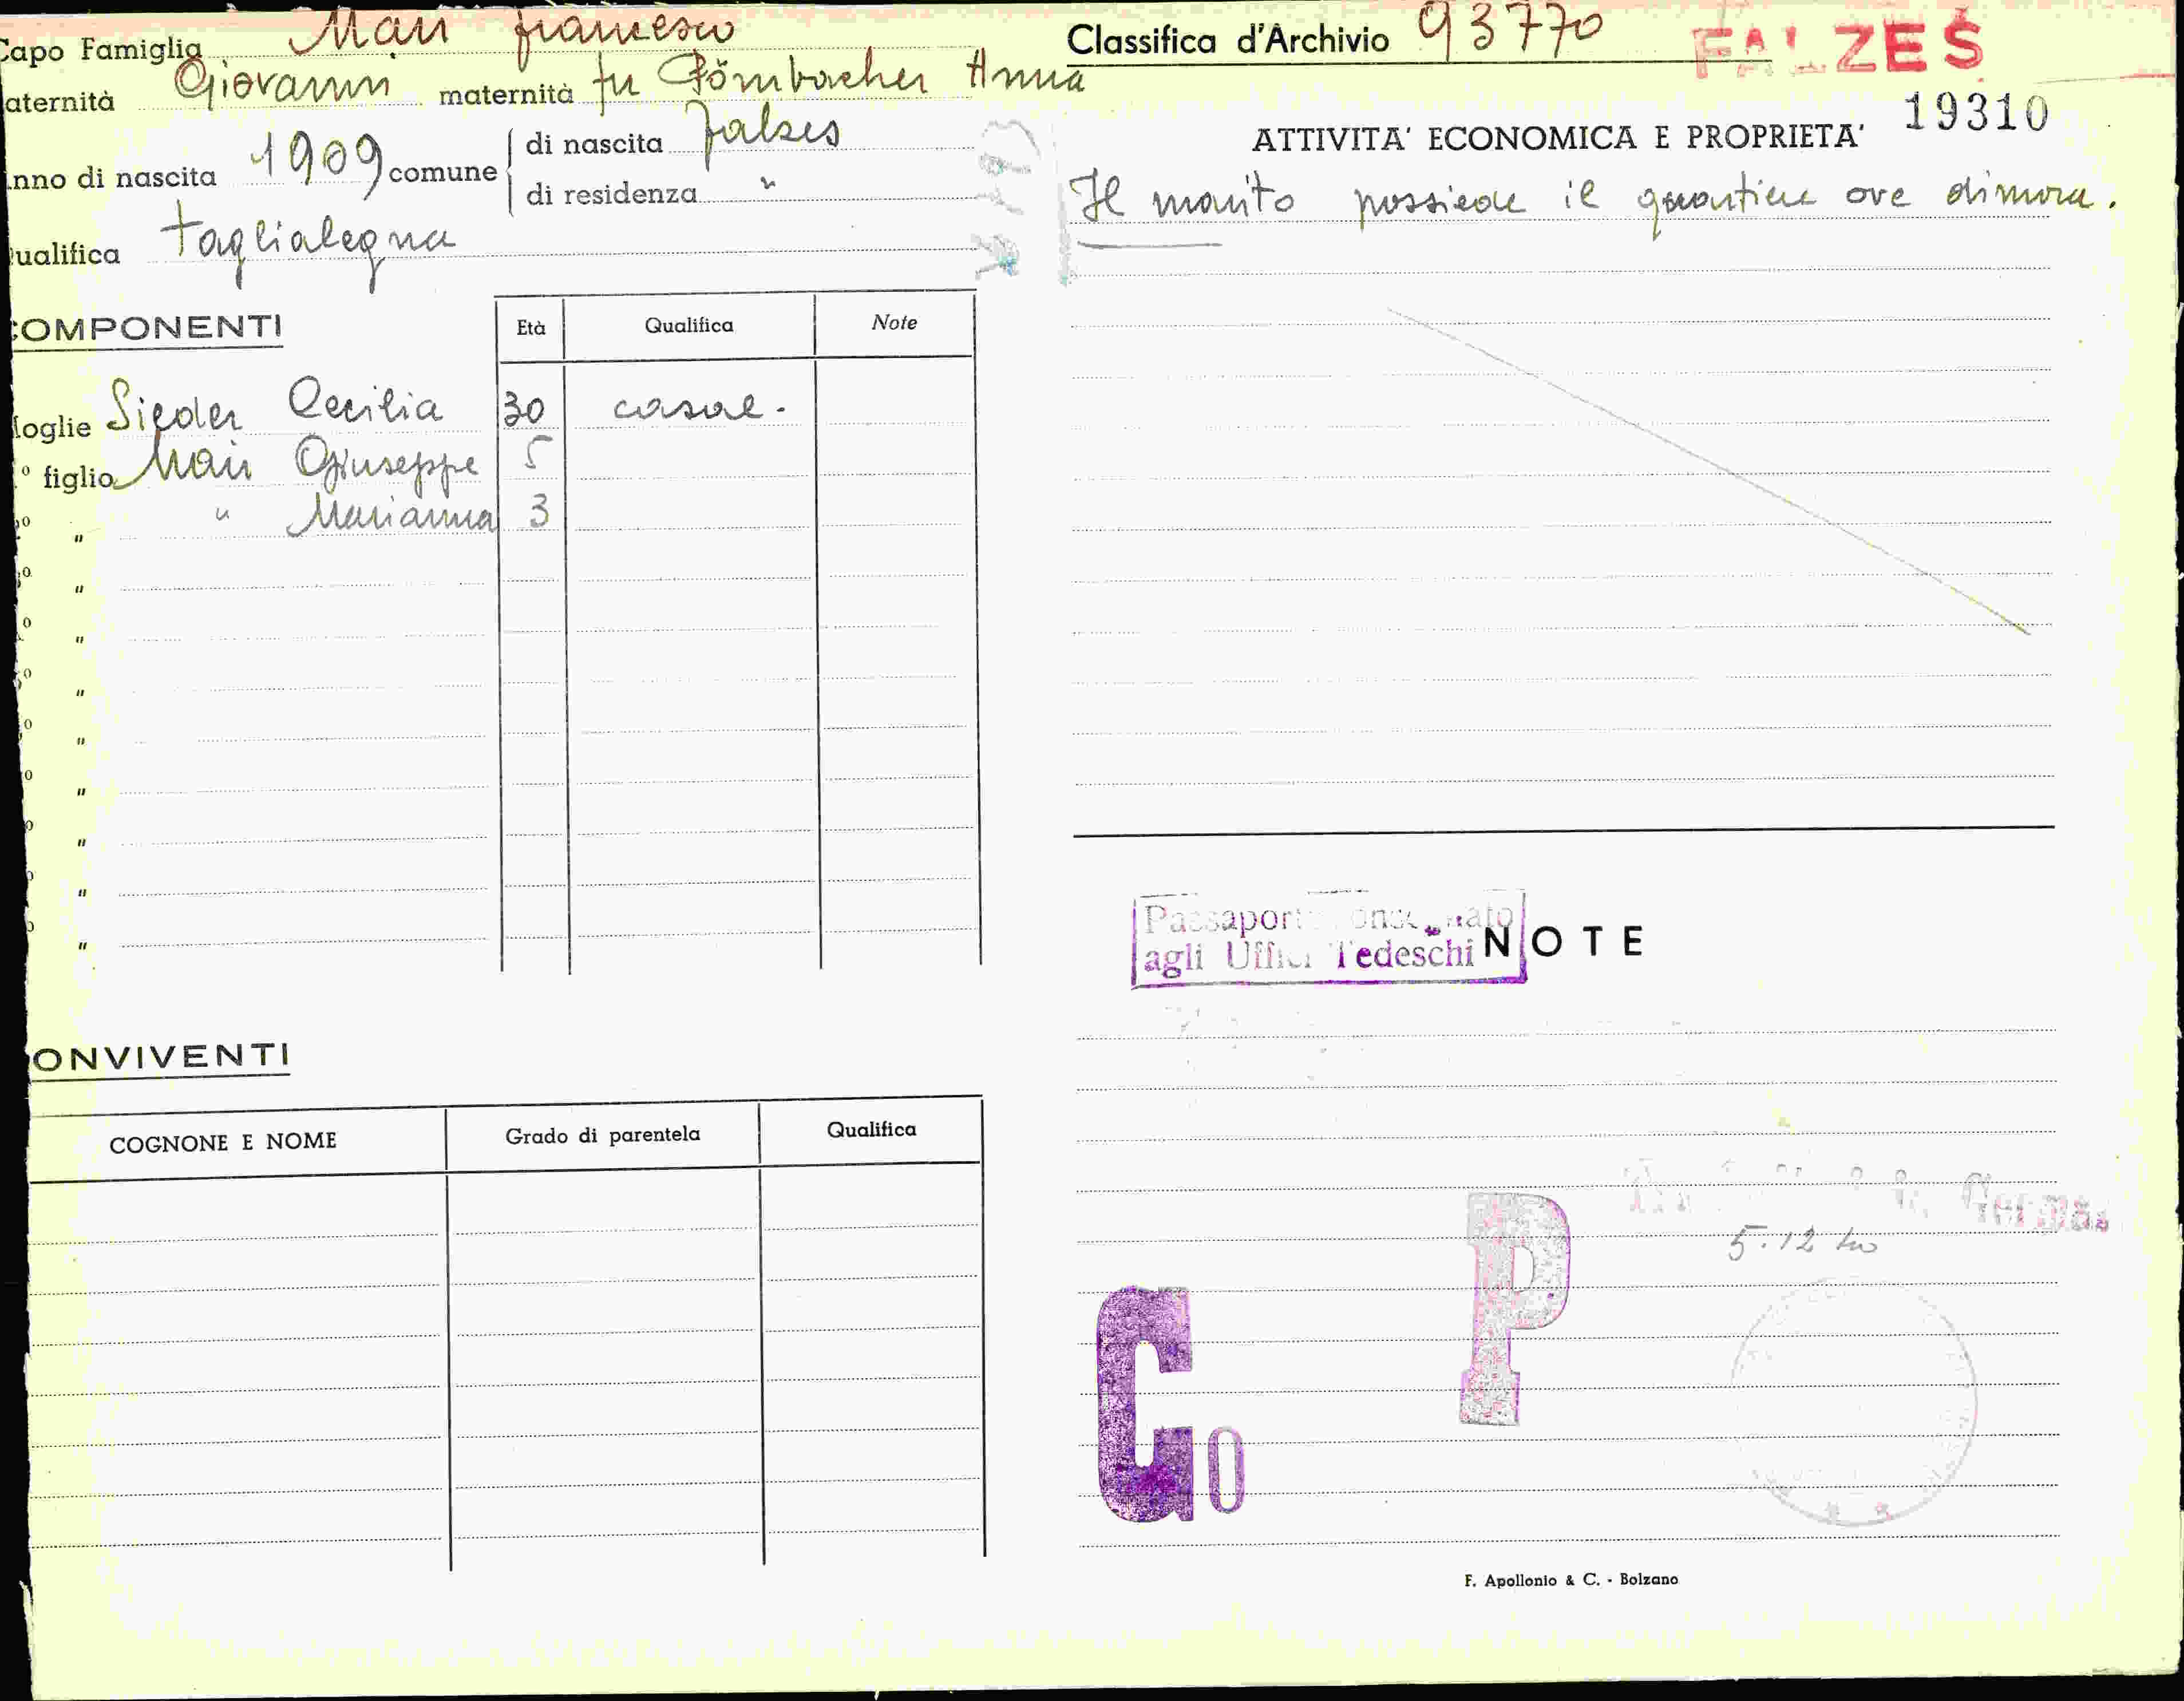 Capo Famiglia Mair Francesco
aternità Giovanni maternità fu Pömbacher Anna
nno di nascita 1909 comune di nascita Falzes
di residenza "
ualifica taglialegna
COMPONENTI
Età Qualifica Note
oglie Sieder Cecilia 30 casal.
° figlio Mair Giuseppe 5
" " Marianna 3
"
"
"
"
"
"
"
"
ONVIVENTI
COGNONE E NOME Grado di parentela Qualifica
Classifica d'Archivio 93770 FALZES
19310
ATTIVITA' ECONOMICA E PROPRIETA'
Il marito possiede il quartiere ove dimora.
Passaport
agli Uffici Tedeschi
NOTE
P
5.12
Go
F. Apollonio & C. - Bolzano